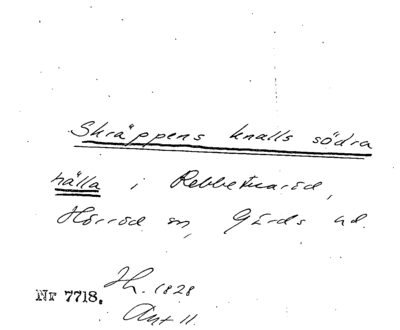 Skräppens knalls södra
hälla i Rebbetuaröd,
Hörröd sn, Gärds hd.
Nr 7718. Hh. 1828
Ant 11.